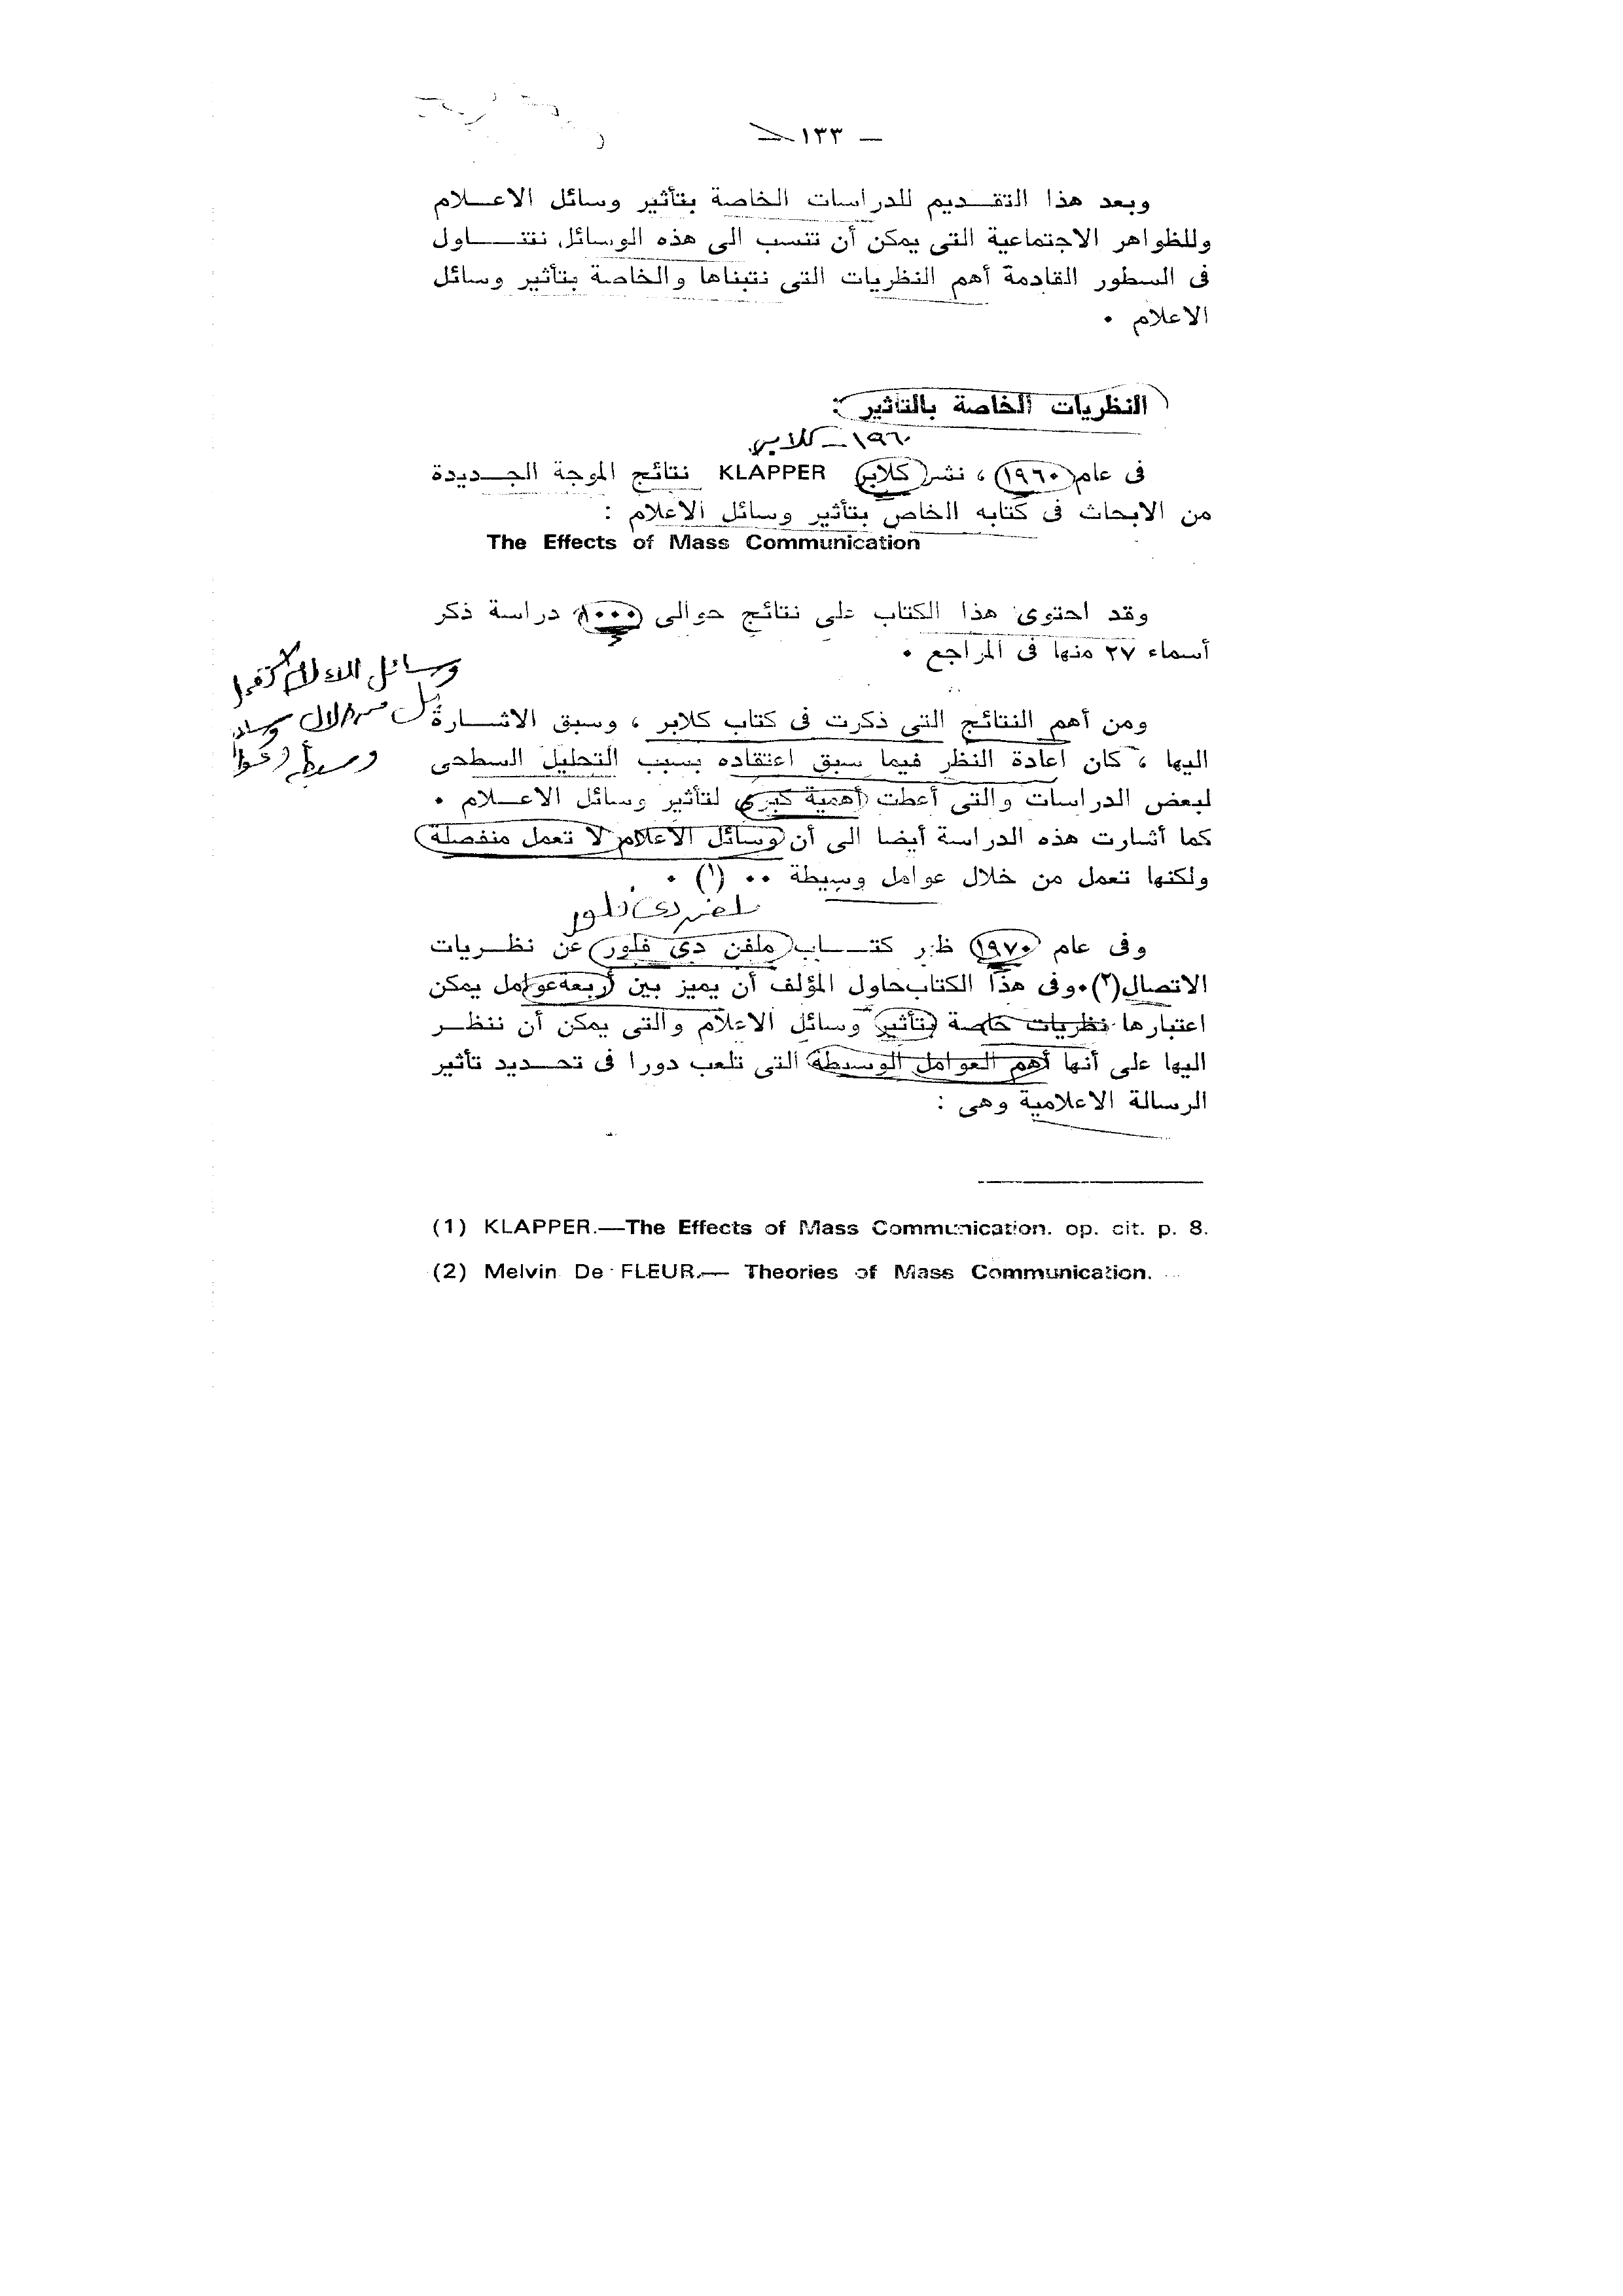 — ١٣٣ —
وبعد هذا التقديم للدراسات الخاصة بتأثير وسائل الاعلام
وللظواهر الاجتماعية التى يمكن أن تنسب الى هذه الوسائل نتناول
فى السطور القادمة أهم النظريات التى نتبناها والخاصة بتأثير وسائل
الاعلام ٠
النظريات الخاصة بالتأثير :
١٩٦٠ - كلابر
فى عام ١٩٦٠ ، نشر كلابر KLAPPER نتائج الموجة الجديدة
من الابحاث فى كتابه الخاص بتأثير وسائل الاعلام :
The Effects of Mass Communication
وقد احتوى هذا الكتاب على نتائج حوالى ١٠٠٠ دراسة ذكر
أسماء ٢٧ منها فى المراجع ٠
وسائل الاعلام لا
من خلال
ومن أهم النتائج التى ذكرت فى كتاب كلابر ، وسبق الاشارة
اليها ، كان اعادة النظر فيما سبق اعتقاده بسبب التحليل السطحى
لبعض الدراسات والتى أعطت أهمية كبرى لتأثير وسائل الاعلام ٠
كما أشارت هذه الدراسة أيضا الى أن وسائل الاعلام لا تعمل منفصلة
ولكنها تعمل من خلال عوامل وسيطة ٠٠ (١) ٠
دى فلور
وفى عام ١٩٧٠ ظهر كتاب ملفن دى فلور عن نظريات
الاتصال(٢)٠وفى هذا الكتاب حاول المؤلف أن يميز بين أربعة عوامل يمكن
اعتبارها نظريات خاصة بتأثير وسائل الاعلام والتى يمكن أن ننظر
اليها على أنها أهم العوامل الوسيطة التى تلعب دورا فى تحديد تأثير
الرسالة الاعلامية وهى :
(1) KLAPPER.—The Effects of Mass Communication. op. cit. p. 8.
(2) Melvin De FLEUR.— Theories of Mass Communication.